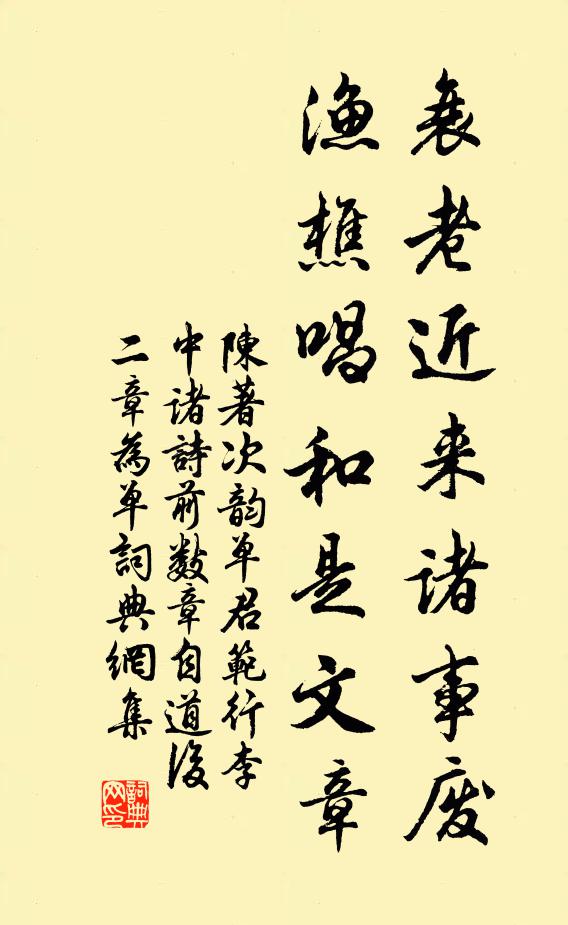 衰老近来诸事废
漁樵唱和是文章
陳著次韵单君範行李
中诸詩前数章自道後
二章為单詞典網集
詞典
网印